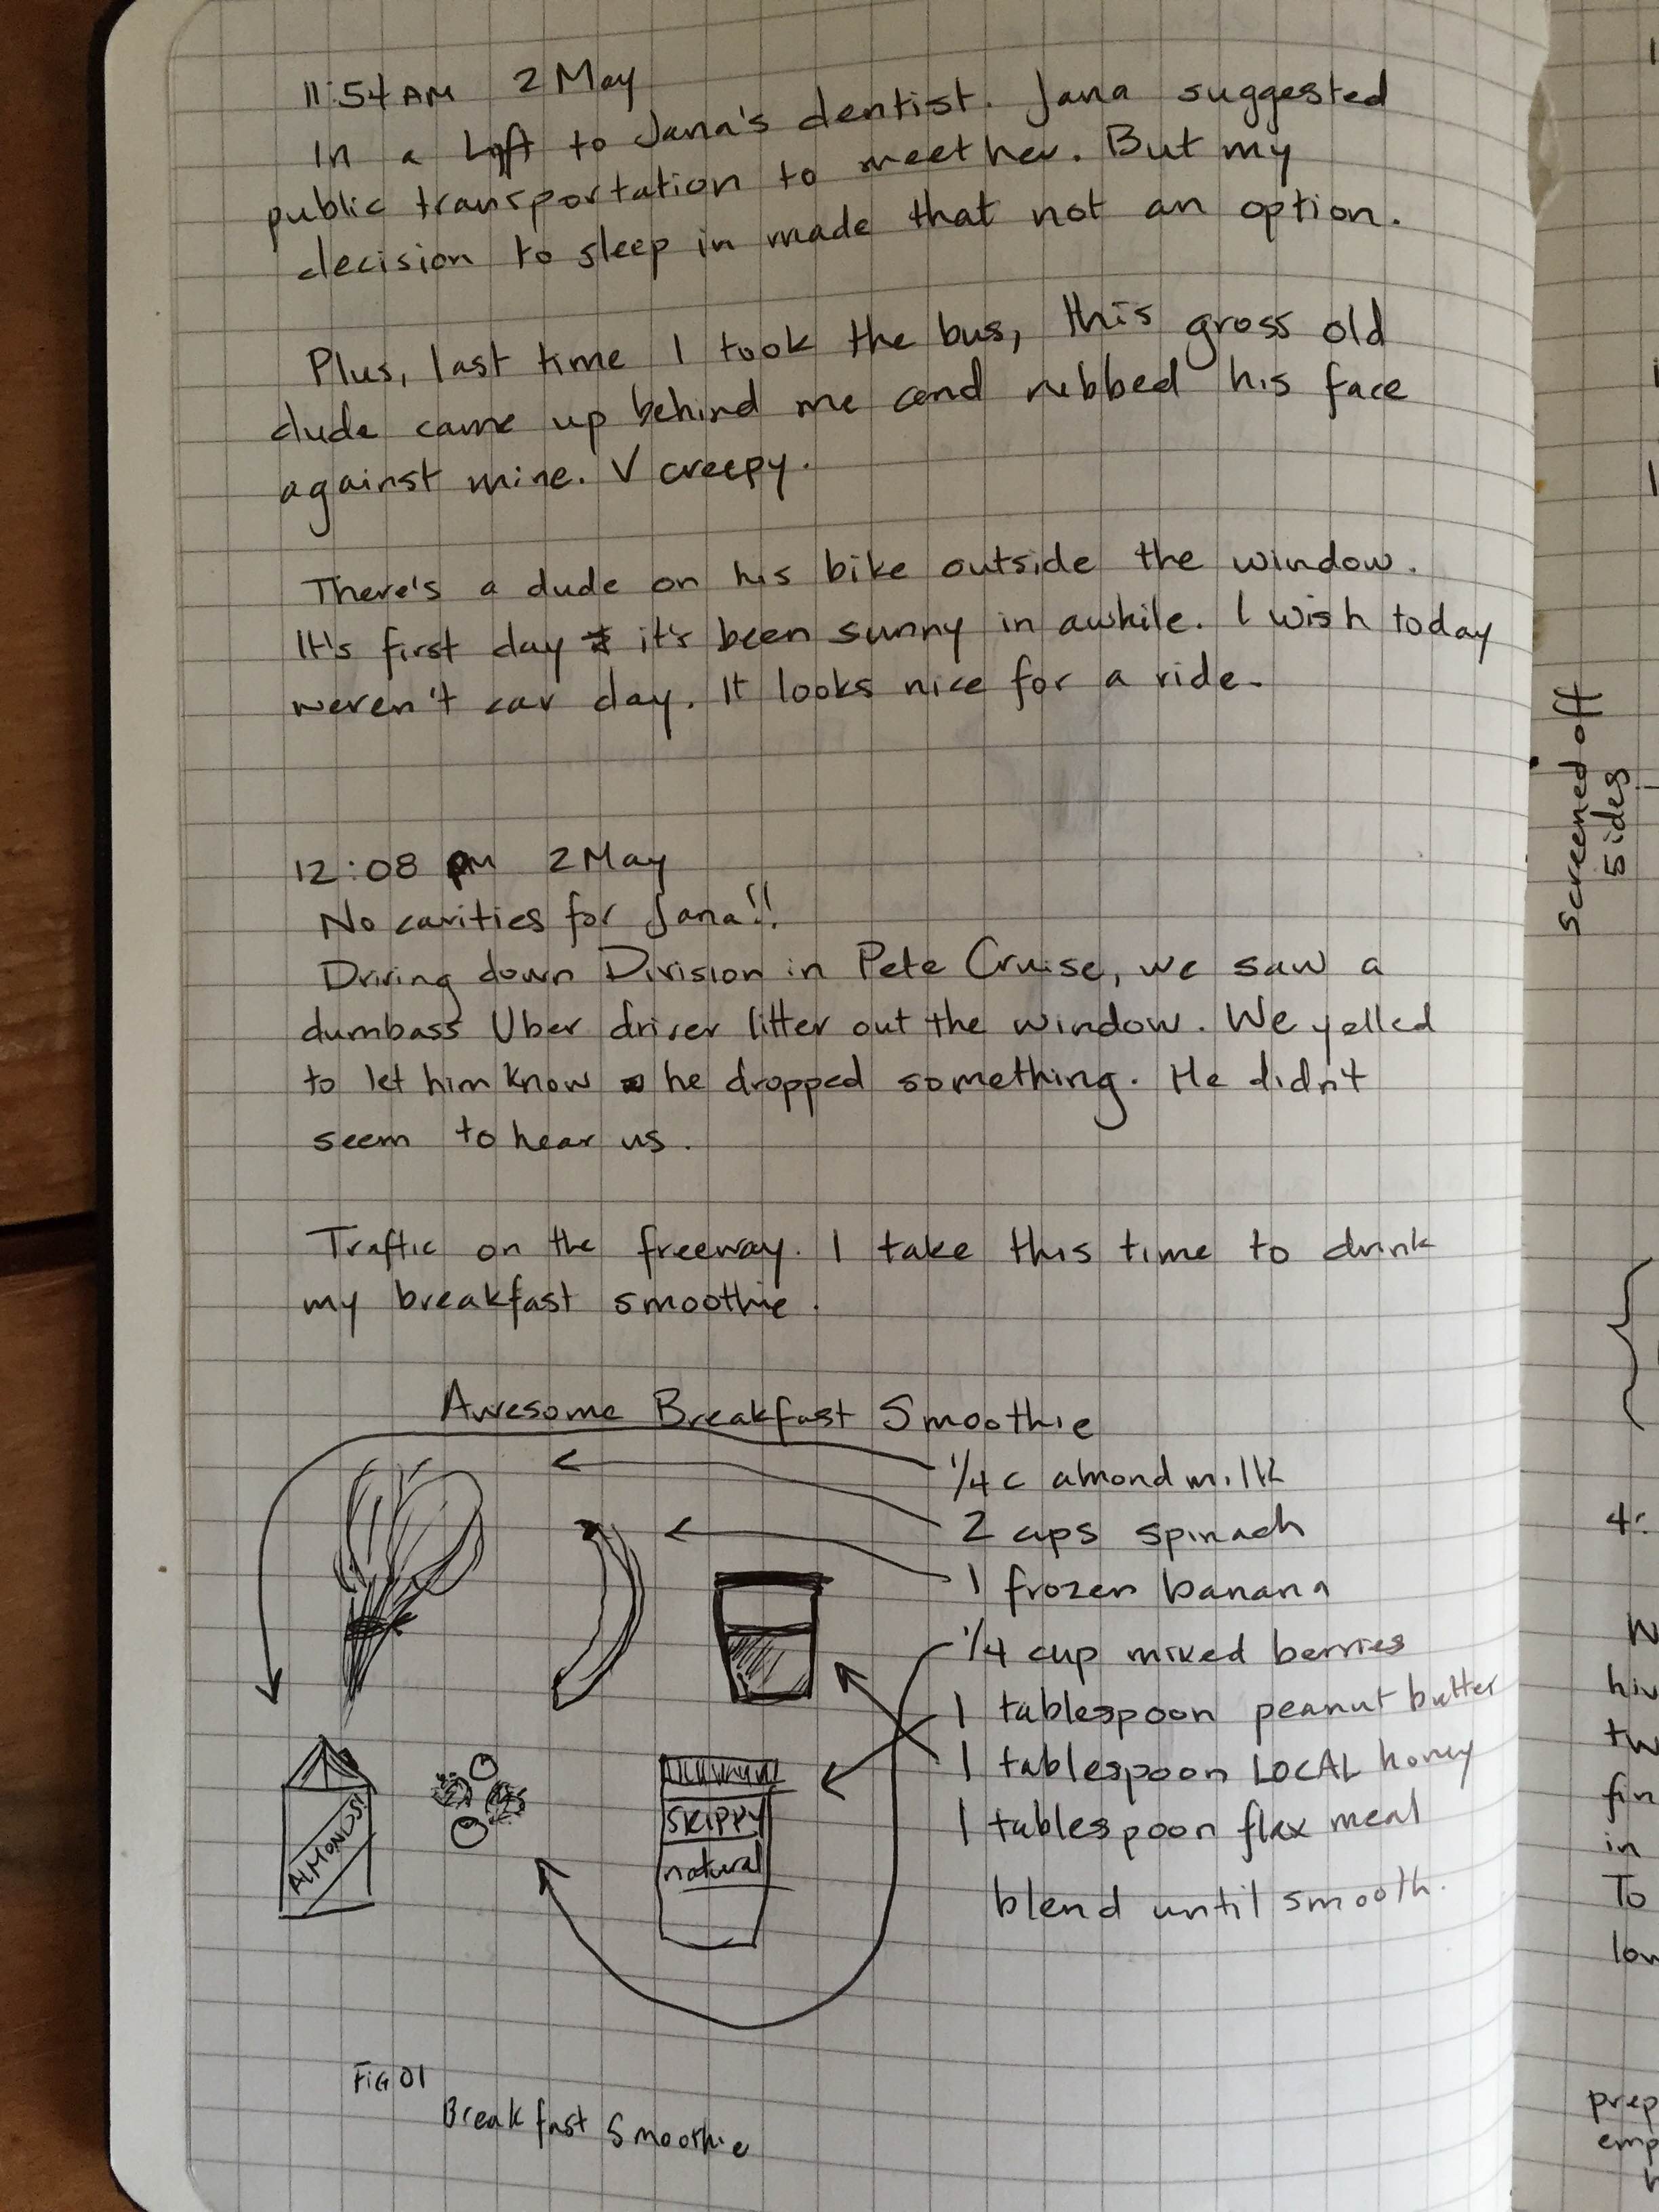 11:54 AM 2 May
In a Lyft to Jana's dentist. Jana suggested
public transportation to meet her. But my
decision to sleep in made that not an option.
Plus, last time I took the bus, this gross old
dude came up behind me and rubbed his face
against mine. V creepy.
There's a dude on his bike outside the window.
It's first day it's been sunny in awhile. I wish today
weren't car day. It looks nice for a ride.
12:08 PM 2 May
No cavities for Jana!!
Driving down Division in Pete Cruise, we saw a
dumbass Uber driver litter out the window. We yelled
to let him know he dropped something. He didn't
seem to hear us.
Traffic on the freeway. I take this time to drink
my breakfast smoothie.
Awesome Breakfast Smoothie
1/4 c almond milk
2 cups spinach
1 frozen banana
1/4 cup mixed berries
1 tablespoon peanut butter
1 tablespoon LOCAL honey
1 tablespoon flax meal
blend until smooth.
ALMONDS!
SKIPPY
natural
FIG 01
Breakfast Smoothie
screened off
sides
4:
in
To